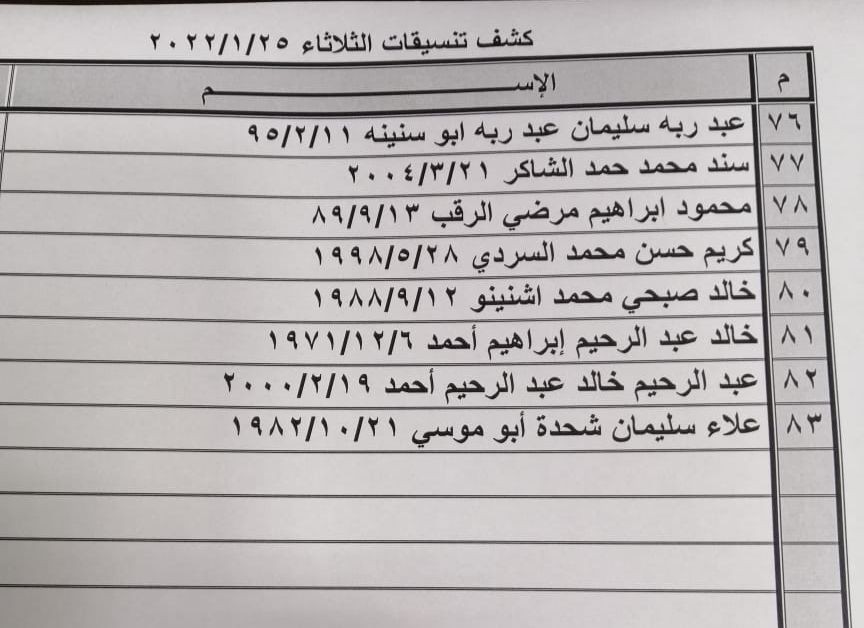 كشف تنسيقات الثلاثاء ٢٠٢٢/١/٢٥
م الإســـــم
٧٦ عبد ربه سليمان عبد ربه ابو سنينه ٩٥/٢/١١
٧٧ سند محمد حمد الشاكر ٢٠٠٤/٣/٢١
٧٨ محمود ابراهيم مرضي الرقب ٨٩/٩/١٣
٧٩ كريم حسن محمد السردي ١٩٩٨/٥/٢٨
٨٠ خالد صبحي محمد اشنينو ١٩٨٨/٩/١٢
٨١ خالد عبد الرحيم إبراهيم أحمد ١٩٧١/١٢/٦
٨٢ عبد الرحيم خالد عبد الرحيم أحمد ٢٠٠٠/٢/١٩
٨٣ علاء سليمان شحدة أبو موسي ١٩٨٢/١٠/٢١